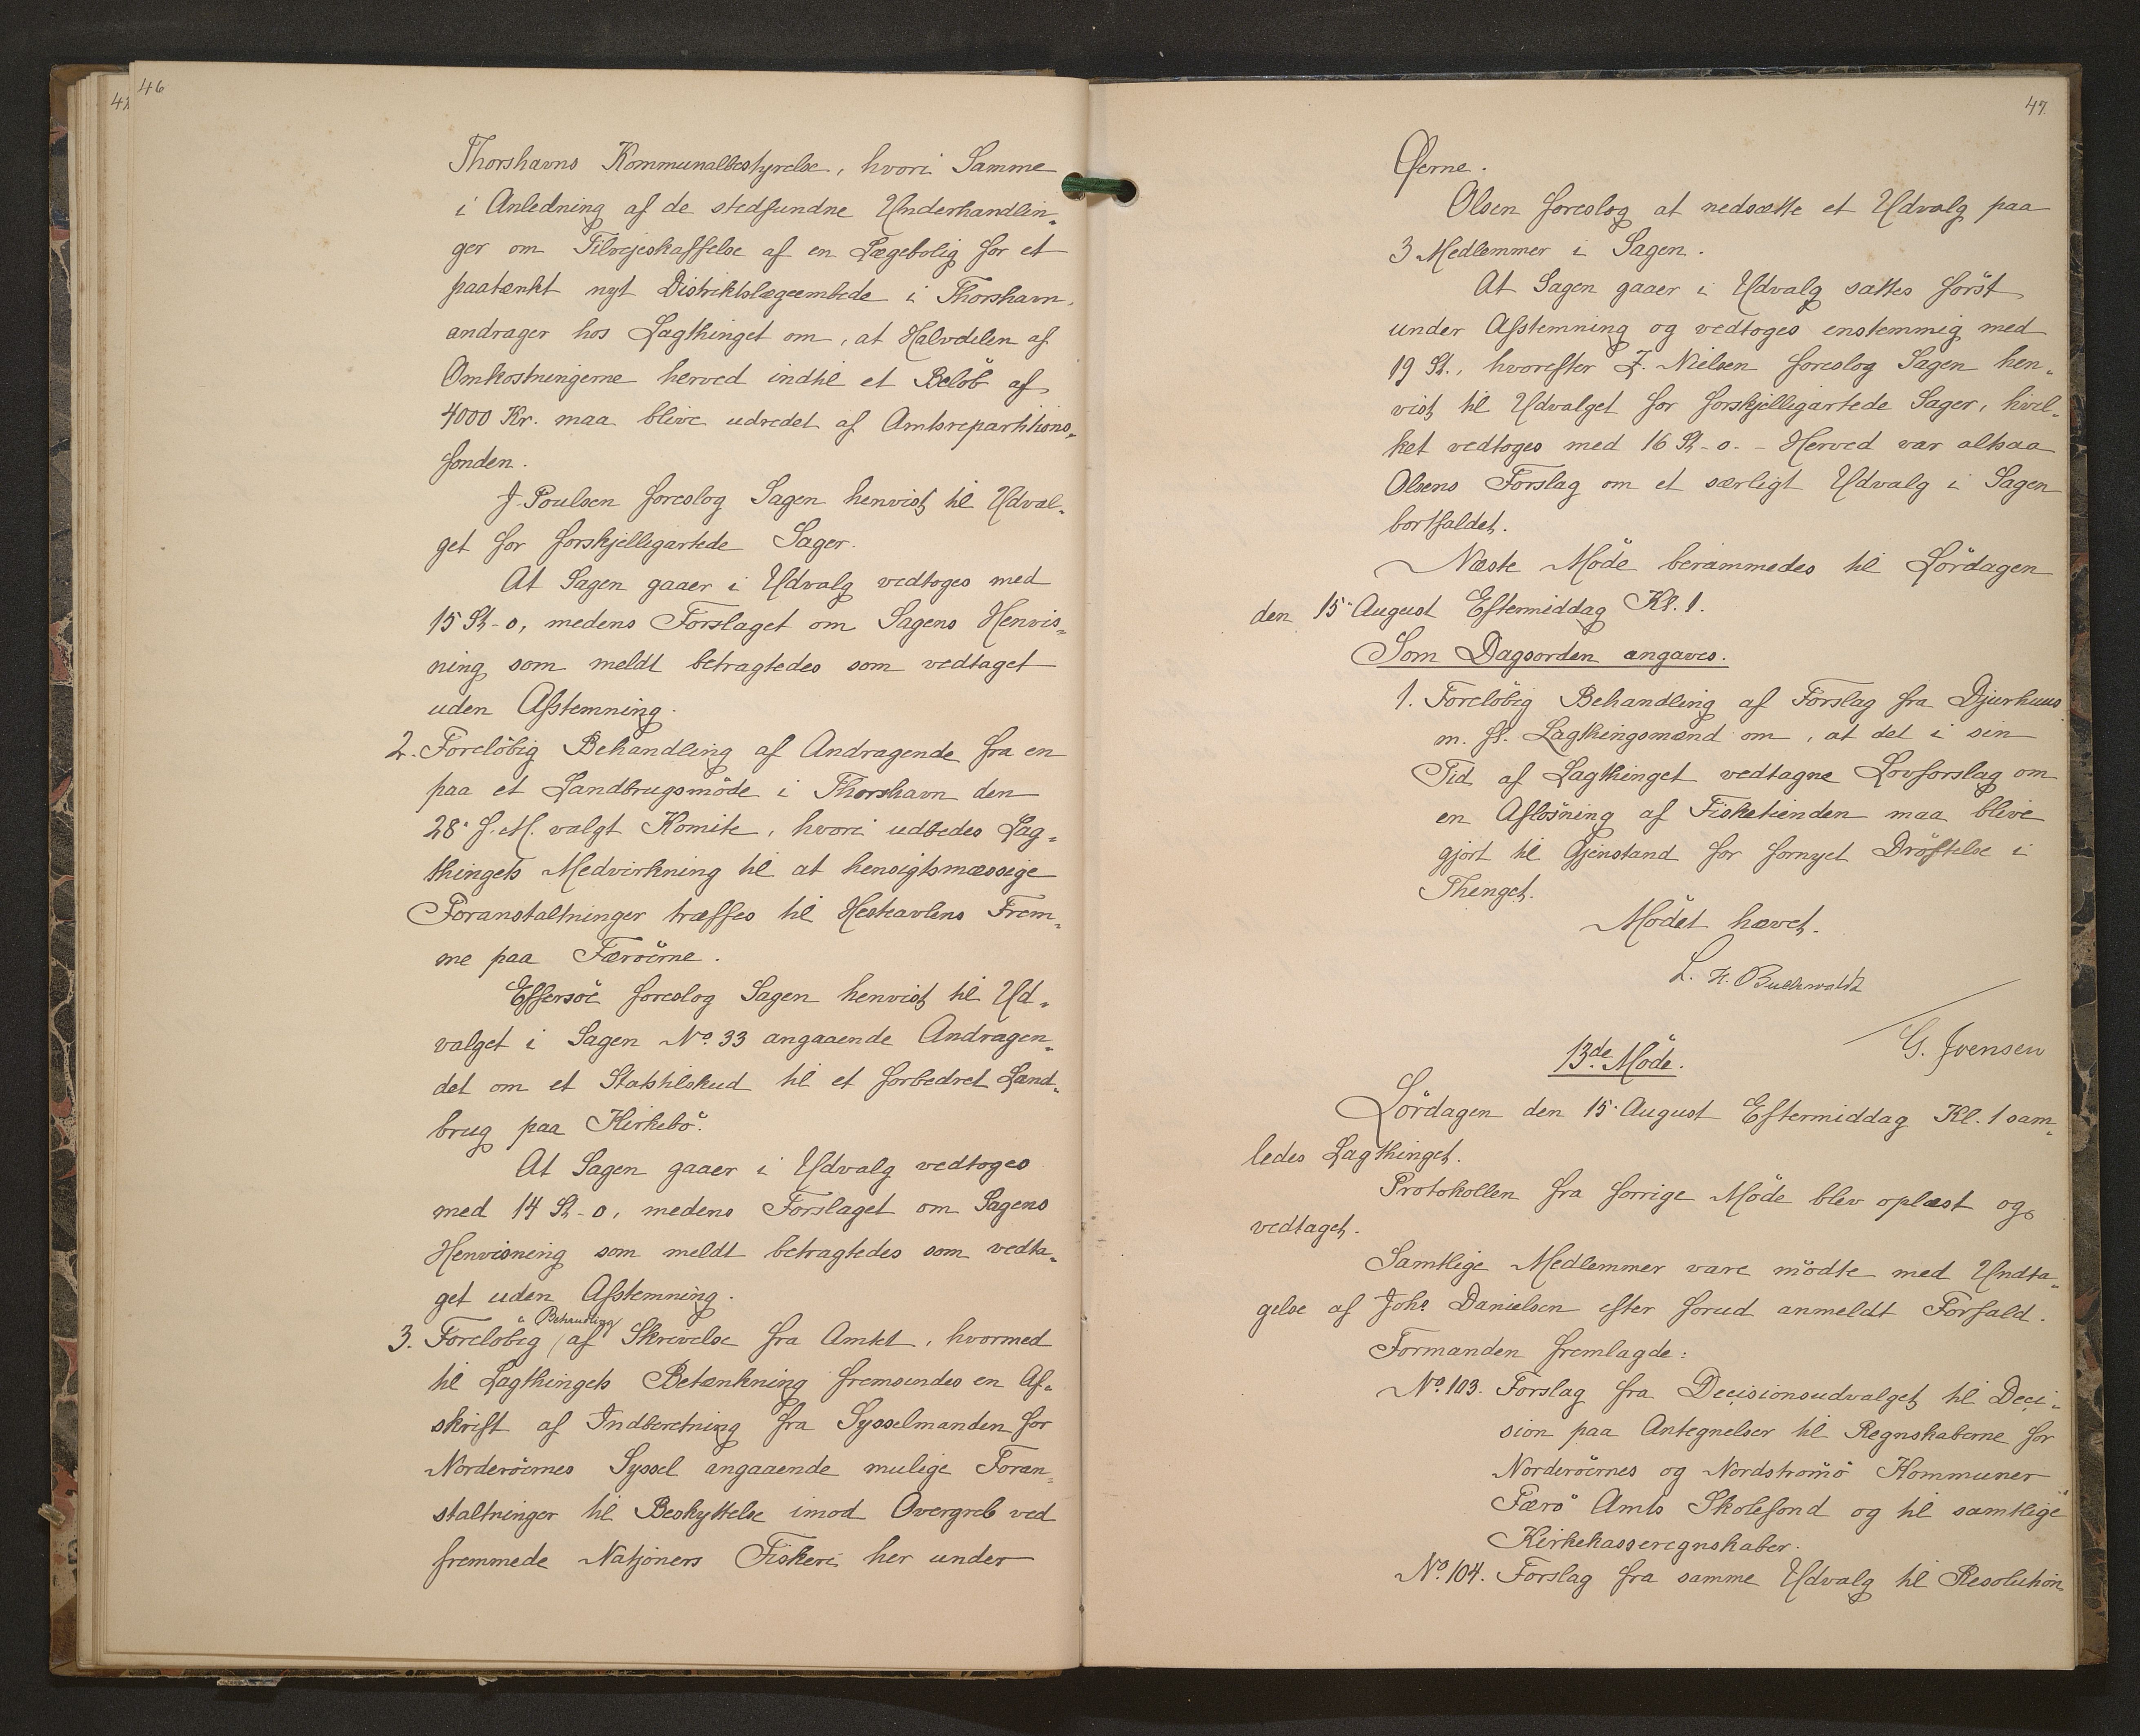 46
42
Thorshavns Kommunalbestyrelse, hvori Samme
i Anledning af de stedfundne Underhandlin-
ger om Tilvejeskaffelse af en Lægebolig for et
paatænkt nyt Distriktslægeembede i Thorshavn,
andrager hos Lagthinget om, at Halvdelen af
Omkostningerne herved indtil et Beløb af
4000 Kr. maa blive udredet af Amtsrepartitions-
fonden.
J. Poulsen foreslog Sagen henvist til Udval-
get for forskjelligartede Sager.
At Sagen gaaer i Udvalg vedtoges med
15 St-0, medens Forslaget om Sagens Henvis-
ning som meldt betragtedes som vedtaget
uden Afstemning.
2. Foreløbig Behandling af Andragende fra en
paa et Landbrugsmøde i Thorshavn den
28. f. M. valgt Komite, hvori udbedes Lag-
thingets Medvirkning til at hensigtsmæssige
Foranstaltninger træffes til Hesteavlens Frem-
me paa Færøerne.
Effersöe foreslog Sagen henvist til Ud-
valget i Sagen No. 33 angaaende Andragen-
det om et Statstilskud til et forbedret Land-
brug paa Kirkebø.
At Sagen gaaer i Udvalg vedtoges
med 14 St-0, medens Forslaget om Sagens
Henvisning som meldt betragtedes som vedta-
get uden Afstemning.
Behandling
3. Foreløbig af Skrivelse fra Amtet, hvormed
til Lagthingets Betænkning fremsendes en Af-
skrift af Indberetning fra Sysselmanden for
Norderøernes Syssel angaaende mulige Foran-
staltninger til Beskyttelse imod Overgreb ved
fremmede Natjoners Fiskeri her under
47.
Øerne.
Olsen foreslog at nedsætte et Udvalg paa
3 Medlemmer i Sagen.
At Sagen gaaer i Udvalg sattes først
under Afstemning og vedtoges enstemmig med
19 St., hvorefter Z. Nielsen foreslog Sagen hen-
vist til Udvalget for forskjelligartede Sager, hvil-
ket vedtoges med 16 St-0. - Herved var altsaa
Olsens Forslag om et særligt Udvalg i Sagen
bortfaldet.
Næste Møde berammedes til Lørdagen
den 15. August Eftermiddag Kl. 1.
Som Dagsorden angaves.
1. Foreløbig Behandling af Forslag fra Djurhuus
m. fl. Lagthingsmænd om, at det i sin
Tid af Lagthinget vedtagne Lovforslag om
en Afløsning af Fisketienden maa blive
gjort til Gjenstand for fornyet Drøftelse i
Thinget.
Mødet hævet.
L. H. Buchwaldt
G. Joensen
13de Møde.
Lørdagen den 15. August Eftermiddag Kl. 1 sam-
ledes Lagthinget.
Protokollen fra forrige Møde blev oplæst og
vedtaget.
Samtlige Medlemmer vare mødte med Undta-
gelse af Johs Danielsen efter forud anmeldt Forfald.
Formanden fremlagde:
No. 103. Forslag fra Decisionsudvalget til Deci-
sion paa Antegnelser til Regnskaberne for
Norderøernes og Nordstrømø Kommuner
Færø Amts Skolefond og til samtlige
Kirkekasseregnskaber.
No. 104. Forslag fra samme Udvalg til Resolution